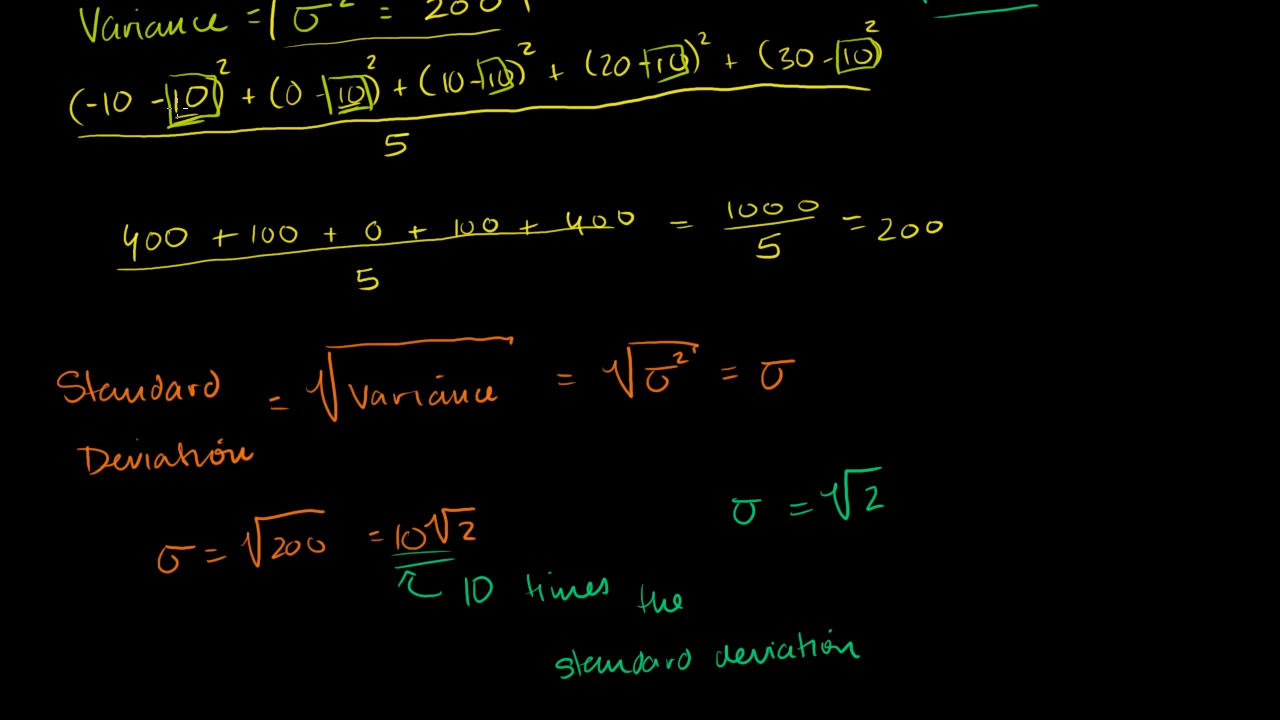 Variance = σ² = 200
(-10 - 10)² + (0 - 10)² + (10 - 10)² + (20 - 10)² + (30 - 10)²
5
400 + 100 + 0 + 100 + 400 = 1000 = 200
5 5
Standard = √Variance = √σ² = σ
Deviation
σ = √2
σ = √200 = 10√2
10 times the
standard deviation